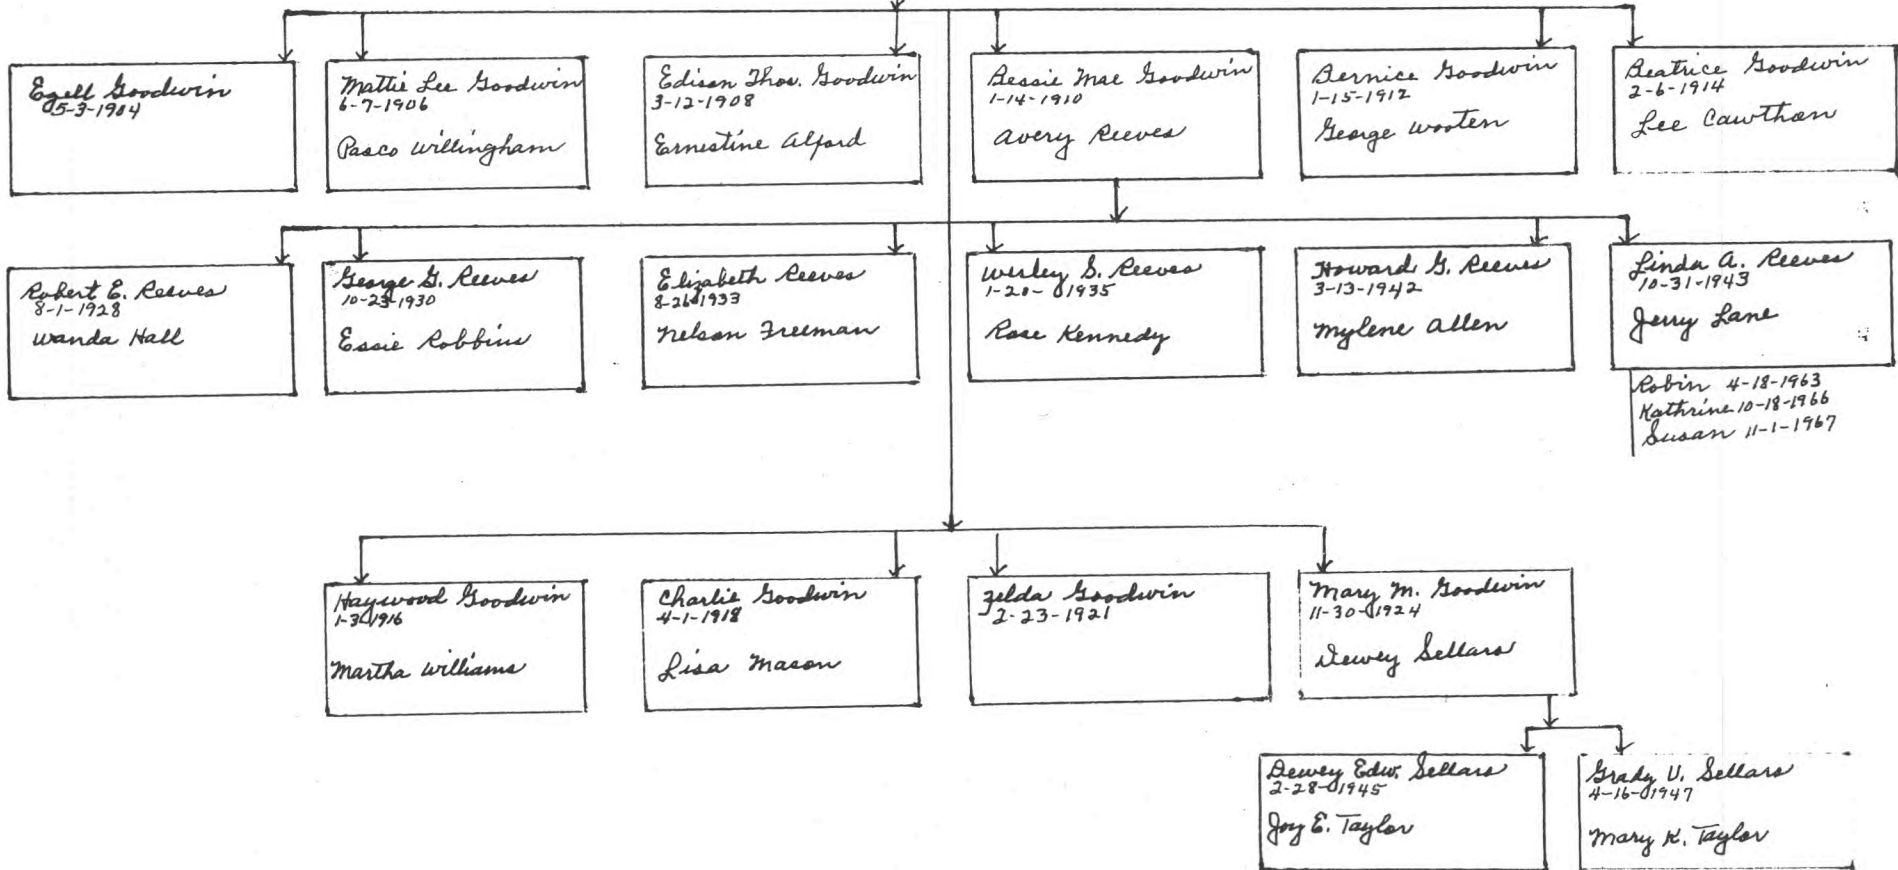 Ezell Goodwin
5-3-1904
Mattie Lee Goodwin
6-7-1906
Pasco Willingham
Edison Thos. Goodwin
3-12-1908
Ernestine Alford
Bessie Mae Goodwin
1-14-1910
Avery Reeves
Bernice Goodwin
1-15-1912
George Wooten
Beatrice Goodwin
2-6-1914
Lee Cawthon
Robert E. Reeves
8-1-1928
Wanda Hall
George G. Reeves
10-23-1930
Essie Robbins
Elizabeth Reeves
8-26-1933
Nelson Freeman
Werley S. Reeves
1-20-1935
Rose Kennedy
Howard G. Reeves
3-13-1942
Mylene Allen
Linda A. Reeves
10-31-1943
Jerry Lane
Robin 4-18-1963
Kathrine 10-18-1966
Susan 11-1-1967
Haywood Goodwin
1-3-1916
Martha Williams
Charlie Goodwin
4-1-1918
Lisa Mason
Zelda Goodwin
2-23-1921
Mary M. Goodwin
11-30-1924
Dewey Sellars
Dewey Edw. Sellars
2-28-1945
Joy E. Taylor
Grady V. Sellars
4-16-1947
Mary K. Taylor